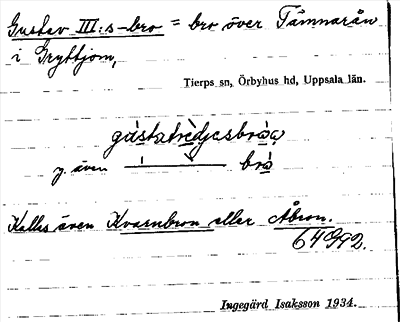 Gustav III:s-bro = bro över Tämnarån
i Gryttjom,
Tierps sn, Örbyhus hd, Uppsala län.
gùstatrèdjesbròa
y. även brò
Kallas även Kvarnbron eller Åbron.
64992.
Ingegärd Isaksson 1934.